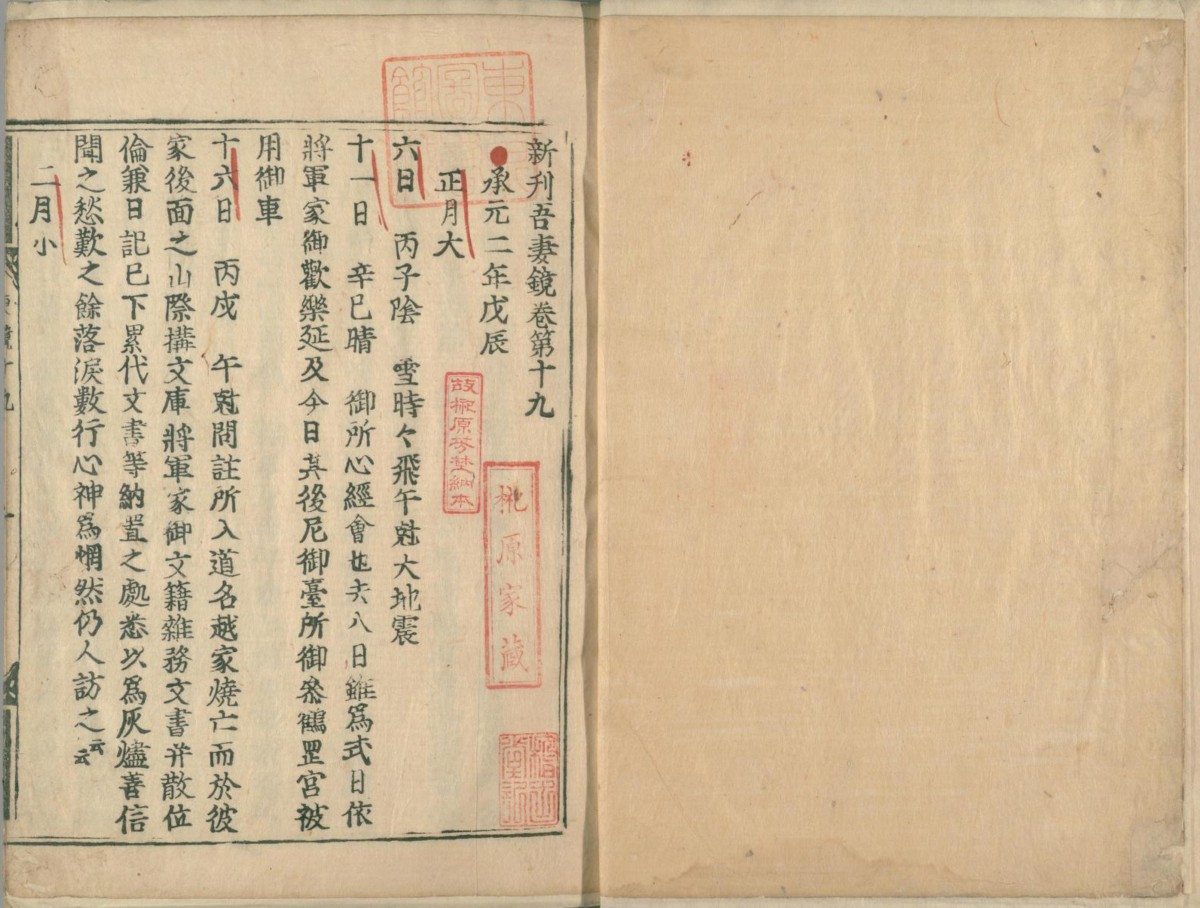 新刊吾妻鏡卷第十九
承元二年戊辰
正月大
六日　丙子陰　雪時々飛午尅大地震
十一日　辛巳晴　御所心經會也去八日雖爲式日依
將軍家御歡樂延及今日其後尼御臺所御叅鶴罡宮被
用御車
十六日　丙戌　午尅問註所入道名越家燒亡而於彼
家後面之山際搆文庫將軍家御文籍雜務文書幷散位
倫兼日記已下累代文書等納置之處悉以爲灰燼善信
聞之愁歎之餘落淚數行心神爲惘然仍人訪之云云
二月小
故榊原芳埜納本
榊原家藏